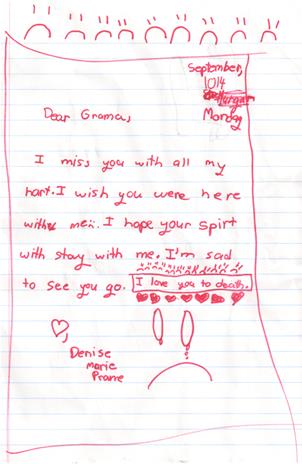 September,
1014
Monday
Dear Grama,
I miss you with all my
hart. I wish you were here
with me. I hope your spirt
with stay with me. I'm sad
to see you go. I love you to death.
Denise
Marie